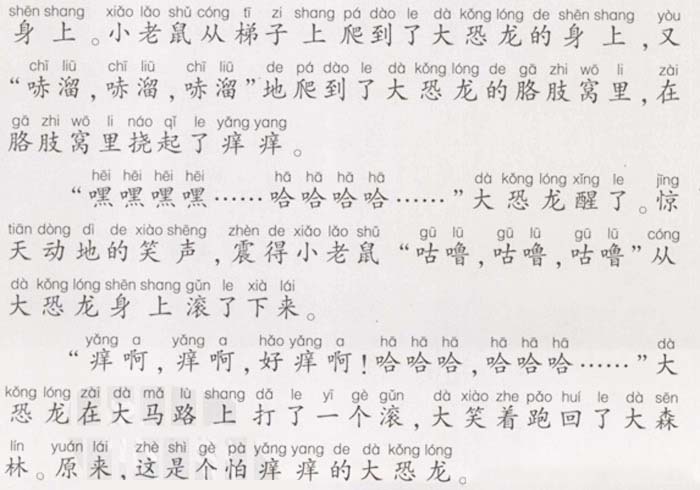 shēn shang xiǎo lǎo shǔ cóng tī zi shang pá dào le dà kǒng lóng de shēn shang yòu
身上。小老鼠从梯子上爬到了大恐龙的身上,又
chī liū chī liū chī liū de pá dào le dà kǒng lóng de gā zhi wō li zài
“哧溜,哧溜,哧溜”地爬到了大恐龙的胳肢窝里,在
gā zhi wō li náo qǐ le yǎng yang
胳肢窝里挠起了痒痒。
hēi hēi hēi hēi hā hā hā hā dà kǒng lóng xǐng le jīng
“嘿嘿嘿嘿……哈哈哈哈……”大恐龙醒了。惊
tiān dòng dì de xiào shēng zhèn de xiǎo lǎo shǔ gū lū gū lū gū lū cóng
天动地的笑声,震得小老鼠“咕噜,咕噜,咕噜”从
dà kǒng lóng shēn shang gǔn le xià lái
大恐龙身上滚了下来。
yǎng a yǎng a hǎo yǎng a hā hā hā hā hā hā dà
“痒啊,痒啊,好痒啊!哈哈哈,哈哈哈……”大
kǒng lóng zài dà mǎ lù shang dǎ le yī gè gǔn dà xiào zhe pǎo huí le dà sēn
恐龙在大马路上打了一个滚,大笑着跑回了大森
lín yuán lái zhè shì gè pà yǎng yang de dà kǒng lóng
林。原来,这是个怕痒痒的大恐龙。